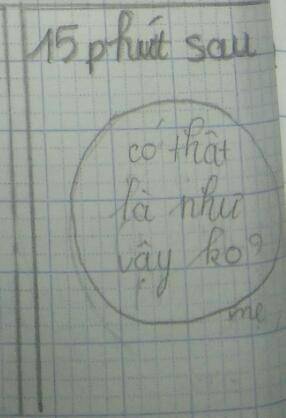 15 phút sau
có thật
là như
vậy ko?
mẹ